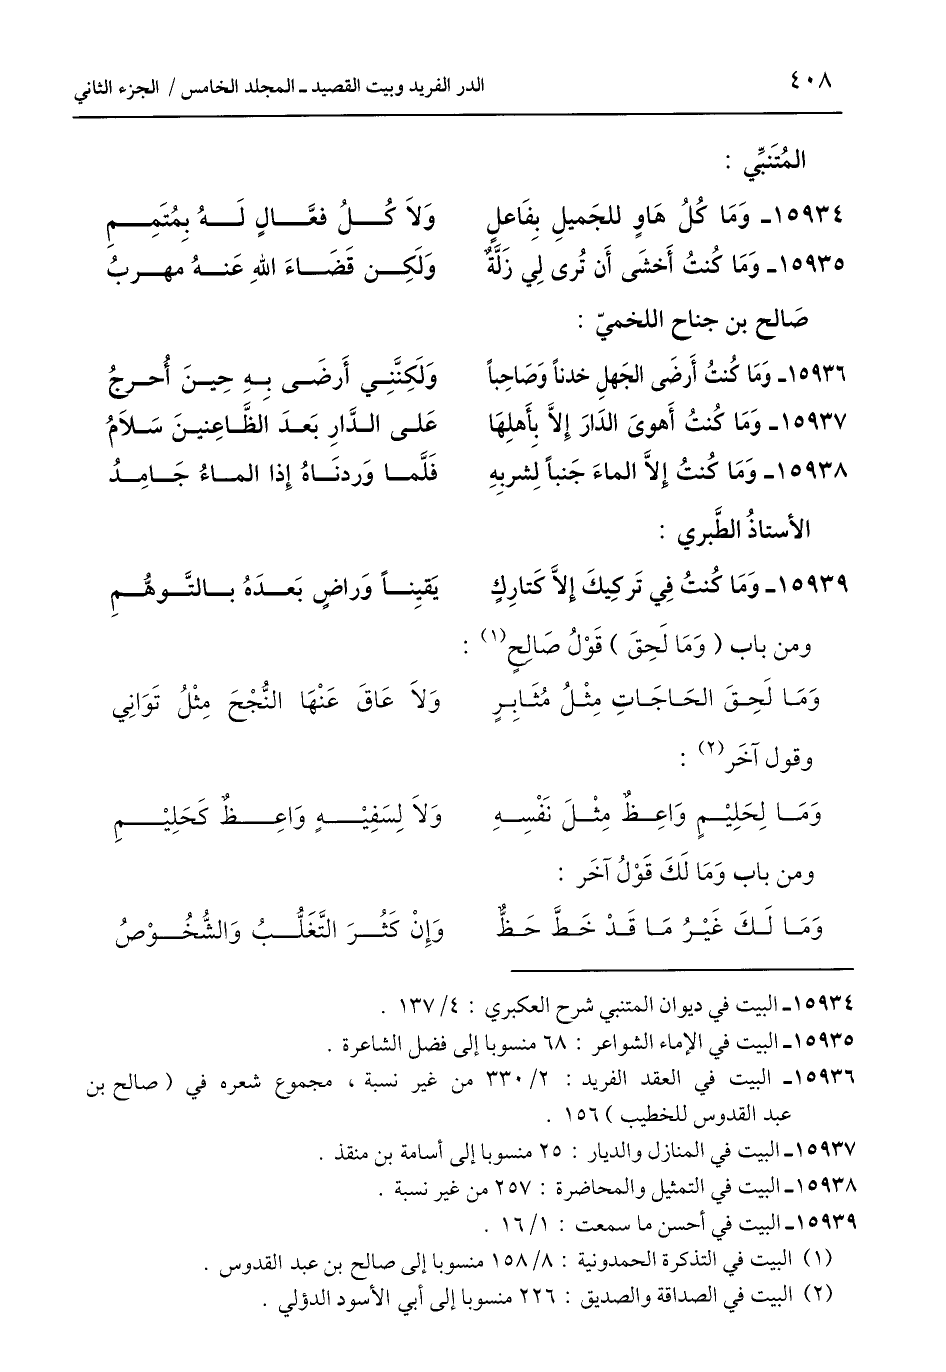 ٤٠٨ الدر الفريد وبيت القصيد ـ المجلد الخامس / الجزء الثاني
المُتَنبِّي :
١٥٩٣٤ـ وَمَا كُلُ هَاوٍ للجَميلِ بِفَاعلٍ وَلاَ كُلُ فعَّالٍ لَهُ بِمُتَممِ
١٥٩٣٥ـ وَمَا كُنتُ أَخشَى أَن تُرى لِي زَلَّةٌ وَلَكِن قَضَاءَ اللهِ عَنهُ مهربُ
صَالح بن جناح اللخميّ :
١٥٩٣٦ـ وَمَا كُنتُ أَرضَى الجَهلِ خدناً وَصَاحِباً وَلَكِنَّنِي أَرضَى بِهِ حِينَ أُحرجُ
١٥٩٣٧ـ وَمَا كُنتُ أَهوىَ الدَارَ إِلاَّ بِأَهلِهَا عَلى الدَّارِ بَعدَ الظَّاعِنينَ سَلاَمُ
١٥٩٣٨ـ وَمَا كُنتُ إِلاَّ الماءَ جَنباً لِشربِهِ فَلَّمَا وَردنَاهُ إذا الماءُ جَامِدُ
الأستاذُ الطَّبري :
١٥٩٣٩ـ وَمَا كُنتُ فِي تَركِيكَ إِلاَّ كَتارِكٍ يَقيِناً وَراضٍ بَعدَهُ بالتَّوهُّمِ
ومن باب ( وَمَا لَحِقَ ) قَوْلُ صَالِحٍ(١) :
وَمَا لَحِقَ الحَاجَاتِ مِثْلُ مُثَابِرٍ وَلاَ عَاقَ عَنْهَا النُّجْحَ مِثْلُ تَوَانِي
وقول آخَر(٢) :
وَمَا لِحَلِيْمٍ وَاعِظٌ مِثْلَ نَفْسِهِ وَلاَ لِسَفِيْهٍ وَاعِظٌ كَحَلِيْمِ
ومن باب وَمَا لَكَ قَوْلُ آخَر :
وَمَا لَكَ غَيْرُ مَا قَدْ خَطَّ حَظٌّ وَإِنْ كَثُرَ التَّغَلُّبُ وَالشُّخُوْصُ
١٥٩٣٤ـ البيت في ديوان المتنبي شرح العكبري : ٤/ ١٣٧ .
١٥٩٣٥ـ البيت في الإماء الشواعر : ٦٨ منسوبا إلى فضل الشاعرة .
١٥٩٣٦ـ البيت في العقد الفريد : ٢/ ٣٣٠ من غير نسبة ، مجموع شعره في ( صالح بن
عبد القدوس للخطيب ) ١٥٦ .
١٥٩٣٧ـ البيت في المنازل والديار : ٢٥ منسوبا إلى أسامة بن منقذ .
١٥٩٣٨ـ البيت في التمثيل والمحاضرة : ٢٥٧ من غير نسبة .
١٥٩٣٩ـ البيت في أحسن ما سمعت : ١/ ١٦ .
(١) البيت في التذكرة الحمدونية : ٨/ ١٥٨ منسوبا إلى صالح بن عبد القدوس .
(٢) البيت في الصداقة والصديق : ٢٢٦ منسوبا إلى أبي الأسود الدؤلي .